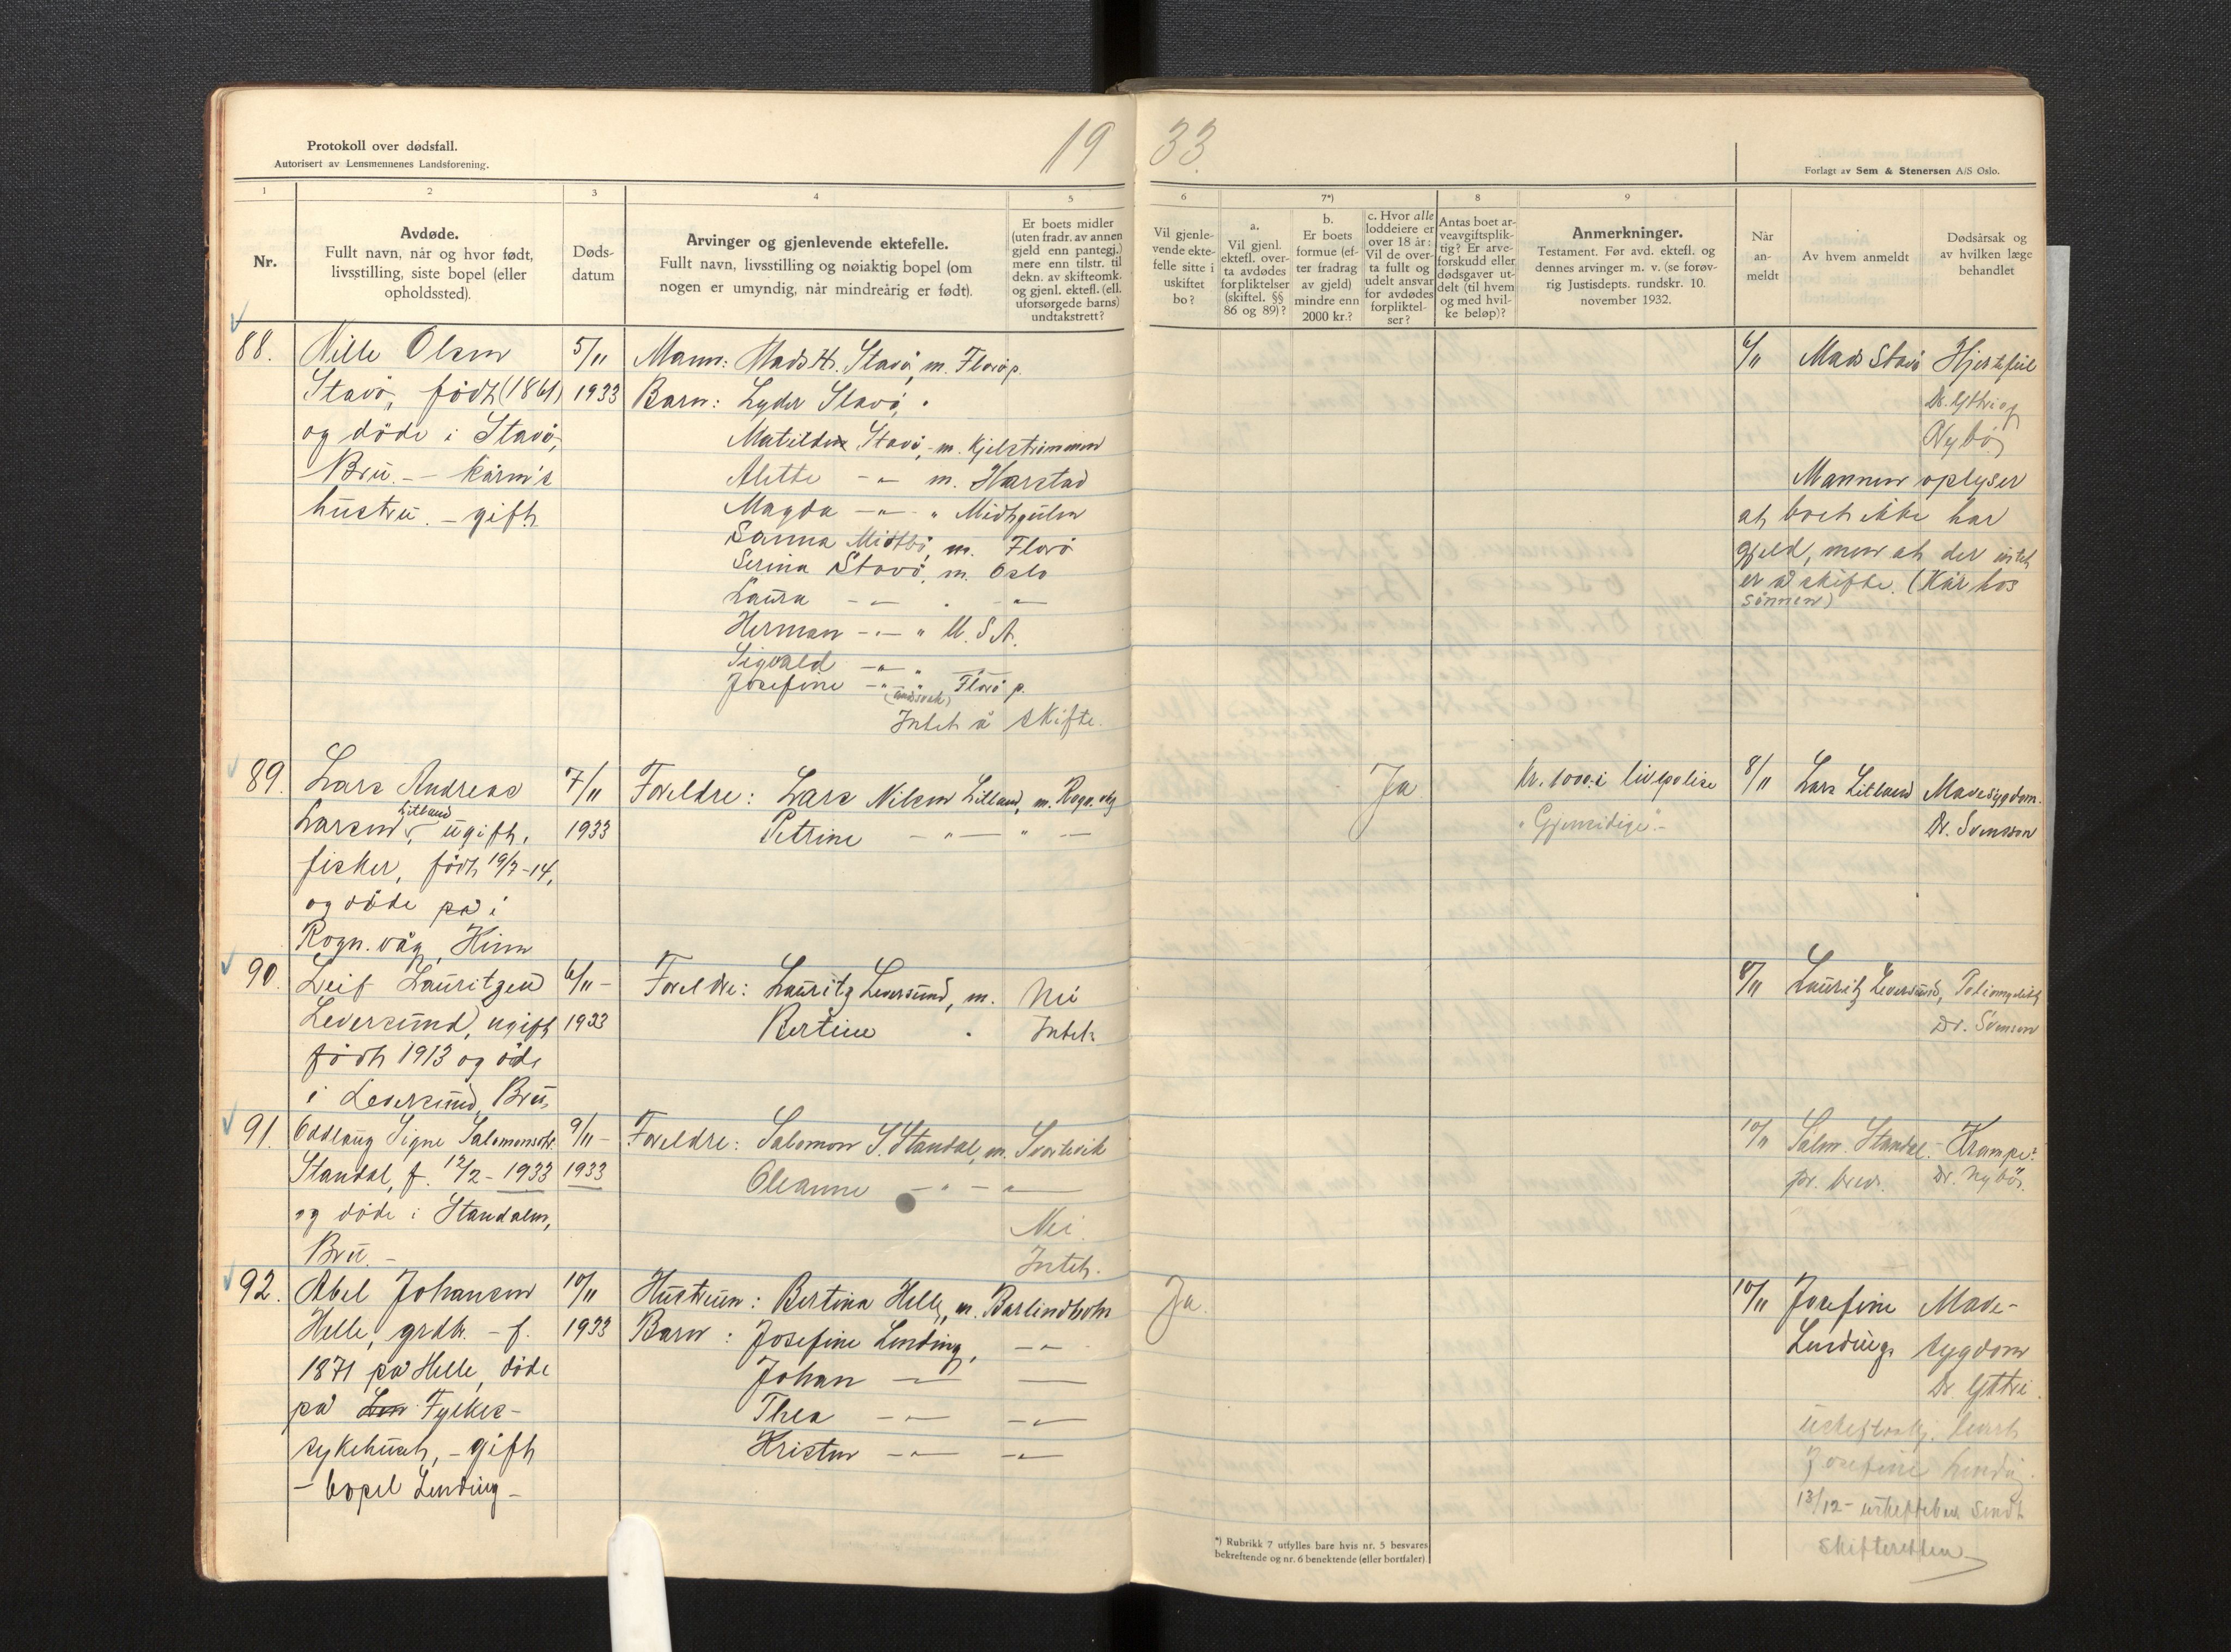 Protokoll over dødsfall.
Autorisert av Lensmennenes Landsforening.
19 33
Forlagt av Sem & Stenersen A/S Oslo.
1 2 3 4 5 6 7*) 8 9
Nr.
Avdøde.
Fullt navn, når og hvor født,
livsstilling, siste bopel (eller
opholdssted).
Døds-
datum
Arvinger og gjenlevende ektefelle.
Fullt navn, livsstilling og nøiaktig bopel (om
nogen er umyndig, når mindreårig er født).
Er boets midler
(uten fradr. av annen
gjeld enn pantegj.)
mere enn tilstr. til
dekn. av skifteomk.
og gjenl. ektef. (ell.
uforsørgede barns)
undtakstrett?
Vil gjenle-
vende ekte-
felle sitte i
uskiftet
bo?
a.
Vil gjenl.
ektefl. over-
ta avdødes
forpliktelser
(skiftel. §§
86 og 89)?
b.
Er boets
formue (ef-
ter fradrag
av gjeld)
mindre enn
2000 kr.?
c. Hvor alle
loddeiere er
over 18 år:
Vil de over-
ta fullt og
udelt ansvar
for avdødes
forpliktel-
ser?
Antas boet ar-
veavgiftsplik-
tig? Er arve-
forskudd eller
dødsgaver ut-
delt (til hvem
og med hvil-
ke beløp)?
Anmerkninger.
Testament. Før avd. ektefl. og
dennes arvinger m. v. (se forøv-
rig Justisdepts. rundskr. 10.
november 1932.
Når
an-
meldt
Av hvem anmeldt
Dødsårsak og
av hvilken læge
behandlet
88.
Nille Olsen
Stavø, født (1861)
og døde i Stavø,
Bru. - kårm's
hustru. - gift.
5/11
1933
Mann: Mads H. Stavø, m. Florø p.
Barn: Lyder Stavø, "
Matilde Stavø, m. Kjelstrømmen
Alette -"- m. Harstad
Magda -"- " Midtgulen
Sanna Midtbø, m. Florø
Serina Stavø, m. Oslo
Laura -"- " -"-
Herman -"- " U.S.A.
Sigvald -"- " -"-
Josefine -"- " Florø p.
Intet å skifte.
6/11
Mads Stavø
Hjertefeil
Dr. Yttri og
Nybø
Mannen oplyser
at boet ikke har
gjeld, men at der intet
er å skifte. (Kår hos
sønnen)
89.
Lars Andreas
Larsen Litland, ugift,
fisker, født 19/7-14,
og døde på i
Rogn.våg, Kinn
7/11
1933
Foreldre: Lars Nilsen Litland, m. Rogn.våg
Petrine -"- " -"-
Ja
kr. 1000.- i livspolise
"Gjensidige".-
8/11
Lars Litland
Mavesygdom.
Dr. Svensson
90.
Leif Lauritzen
Leversund, ugift
født 1913 og døde
i Leversund, Bru,
6/11-
1933
Foreldre: Lauritz Leversund, m.
Bertine "
Nei
Intet.
8/11
Lauritz Leversund,
Dr. Svenson
91.
Oddlaug Signe Salomonsdtr.
Standal, f. 12/2-1933
og døde i Standalen,
Bru.-
9/11-
1933
Foreldre: Salomon S. Standal, m. Svortevik
Oleanne -"- -"-
Nei.
Intet.
10/11
Salm. Standal.
pr. brev.
Krampe.
Dr. Nybø.
92.
Abel Johansen
Helle, grdbr. - f.
1871 på Helle, døde
på Fylkes-
sykehuset, - gift
- bopel Lending -
10/11
1933
Hustruen: Bertina Helle, m. Barlindbotn
Barn: Josefine Lending, -"-
Johan -"- -"-
Thea -"- -"-
Kristen -"- -"-
Ja.
10/11
Josefine
Lending.
Mave-
sygdom
Dr. Yttri.
Josefine Lending.
13/12- sendt
Skifteretten
*) Rubrikk 7 utfylles bare hvis nr. 5 besvares
bekreftende og nr. 6 benektende (eller bortfaler)